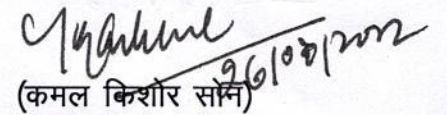 26/07/2022
(कमल किशोर सोन)